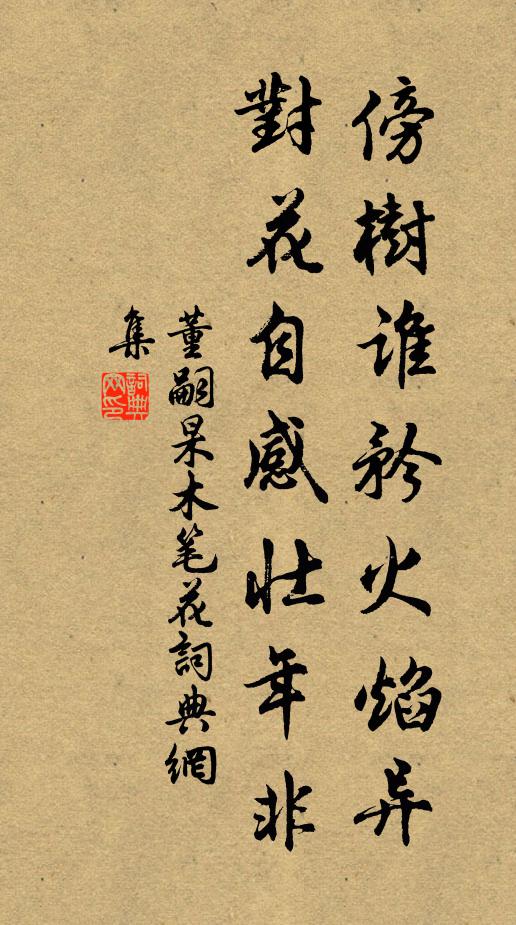 傍樹誰矜火焰异
對花自感壯年非
董嗣杲木笔花詞典網
集
詞典網印